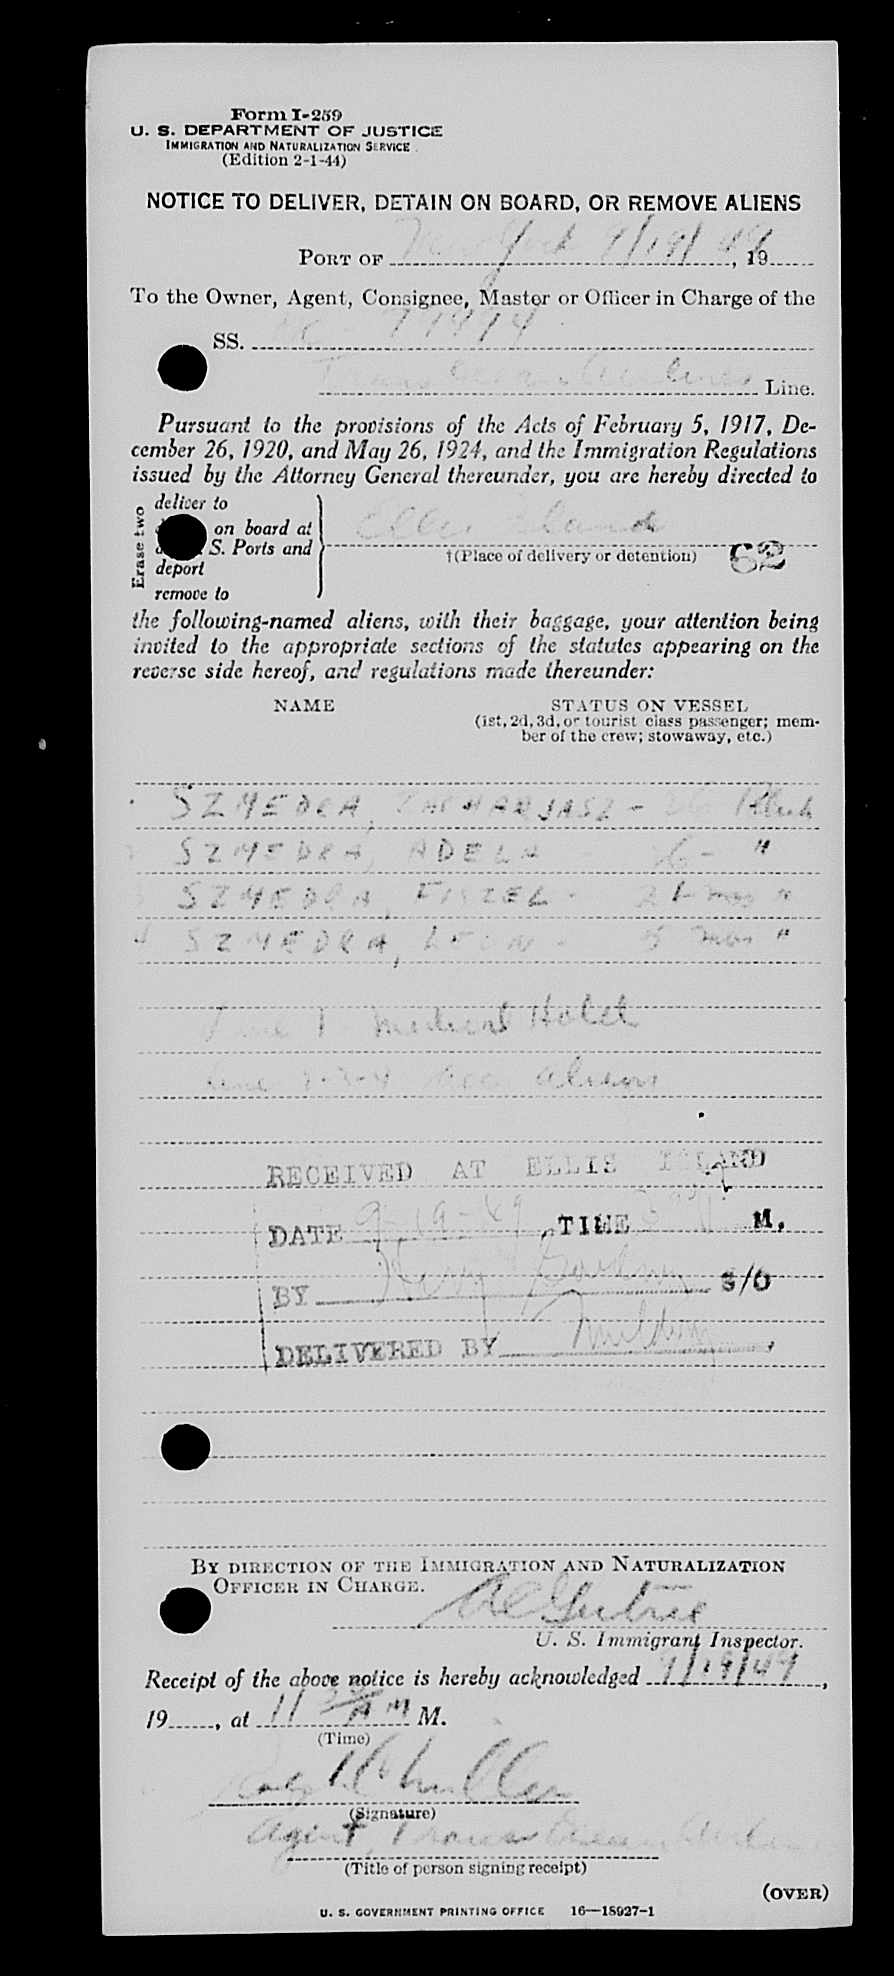 Form I-259
U. S. DEPARTMENT OF JUSTICE
IMMIGRATION AND NATURALIZATION SERVICE
(Edition 2-1-44)
NOTICE TO DELIVER, DETAIN ON BOARD, OR REMOVE ALIENS
PORT OF New York 9/19/49, 19
To the Owner, Agent, Consignee, Master or Officer in Charge of the
SS. NC - 79994
Trans Ocean Airlines Line.
Pursuant to the provisions of the Acts of February 5, 1917, De-
cember 26, 1920, and May 26, 1924, and the Immigration Regulations
issued by the Attorney General thereunder, you are hereby directed to
Erase two
deliver to
on board at
S. Ports and
deport
remove to
Ellis Island
†(Place of delivery or detention)
62
the following-named aliens, with their baggage, your attention being
invited to the appropriate sections of the statutes appearing on the
reverse side hereof, and regulations made thereunder:
NAME STATUS ON VESSEL
(1st, 2d, 3d, or tourist class passenger; mem-
ber of the crew; stowaway, etc.)
SZMEDRA, ZACHARJASZ - 36
SZMEDRA, ADELA - "
SZMEDRA, FISZEL - 21 mos "
4 SZMEDRA, LEON - 5 mos "
Line 1 Medical Hold
Line 2-3-4 Acc Aliens
RECEIVED AT ELLIS ISLAND
DATE 9-19-49, TIME M.
BY Henry S/O
DELIVERED BY
BY DIRECTION OF THE IMMIGRATION AND NATURALIZATION
OFFICER IN CHARGE.
U. S. Immigrant Inspector.
Receipt of the above notice is hereby acknowledged 9/19/49,
19, at 11 AM M.
(Time)
(Signature)
Agent, Trans Ocean Airlines
(Title of person signing receipt)
(OVER)
U. S. GOVERNMENT PRINTING OFFICE 16—18927-1